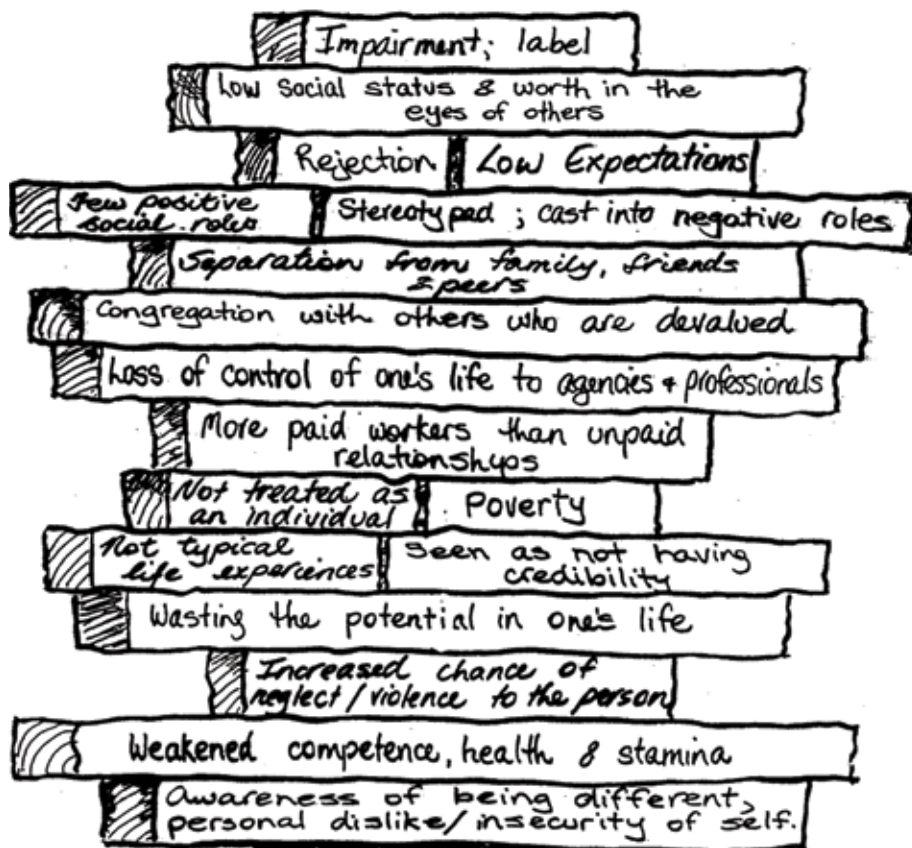 Impairment; label
Low Social status & worth in the
eyes of others
Rejection Low Expectations
Few positive
social roles
Stereotyped; cast into negative roles
Separation from family, friends
& peers
Congregation with others who are devalued
Loss of control of one's life to agencies & professionals
More paid workers than unpaid
relationships
Not treated as
an individual
Poverty
Not typical
life experiences
Seen as not having
credibility
Wasting the potential in one's life
Increased chance of
neglect/violence to the person
Weakened competence, health & stamina
Awareness of being different,
personal dislike/insecurity of self.